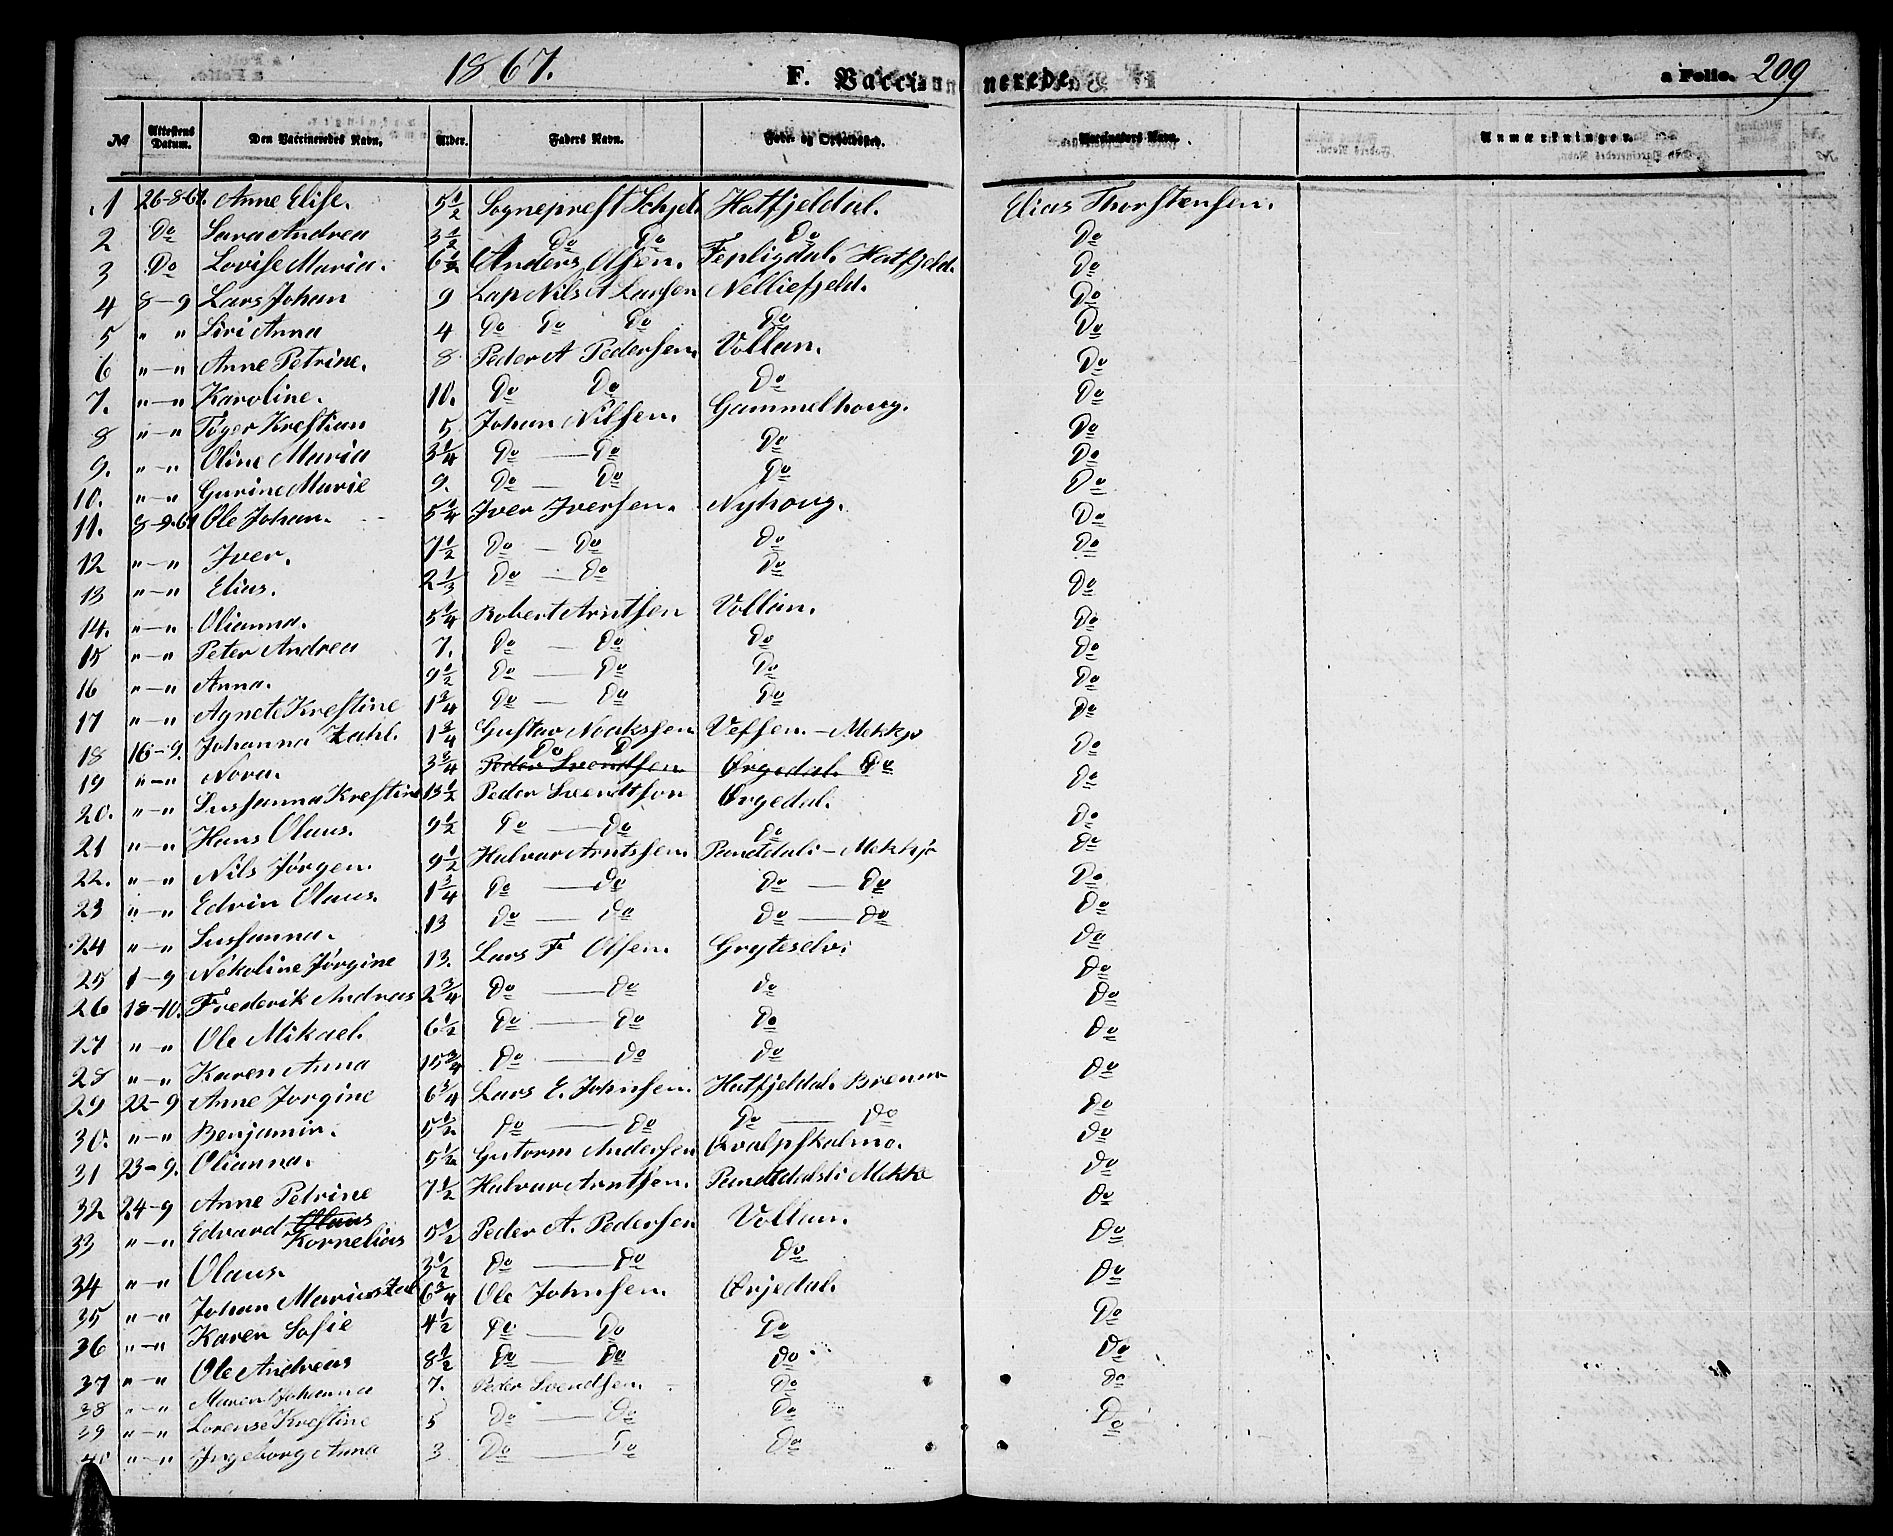 1867. F. Vaccinerede a Folio. 209
№ Attestens Datum. Den Vaccineredes Navn. Alder. Faders Navn. Føde- og Opholdssted. Vaccinators Navn. Anmærkninger.
1 26-8-67. Anne Elise. 5 1/2 Sogneprest Schjel Hatfjeldal. Elias Thorstensen.
2 Do Sara Andrea 3 1/2 Do Do Do Do
3 Do Lovise Maria. 6 1/2 Anders Olsen. Fepligdal. Hatfjeld. Do
4 8-9 Lars Johan 9 Lap Nils A Larsen Nelliefjeld. Do
5 " " Siri Anna 4 Do Do Do Do Do
6 "-" Anne Petrine. 8 Peder A Pedersen. Vollan. Do
7. "-" Karoline. 10. Do Do Do Do
8 "-" Töger Krestian 5 Johan Nilsen. Gammelhoug. Do
9. "-" Oline Maria 3 1/4 Do — Do Do Do
10. "-" Gurine Marie 9. Do — Do Do Do
11. 8-9-67 Ole Johan. 5 1/4 Iver Iversen. Nyhoug. Do
12 "-" Iver. 7 1/2 Do — Do Do Do
13 "-" Elias. 2 1/3 Do — Do Do Do
14. "-" Olianna. 5 1/4 Robert Arntsen Vollan. Do
15 "-" Peter Andrea 7. Do — Do Do Do
16 "-" Anna. 9 1/2 Do — Do Do Do
17 "-" Agnete Krestine 1 3/4 Do — Do Do Do
18 16-9. Johanna Zahl. 1 3/4 Gustav Noaksen Vefsen.-Mekkjo Do
19 "-" Nora. 3 3/4 Do D Peder Svendsen Ørgedal. Do Do
20. "-" Sussanna Krestine 13 1/2 Peder Svendtsen Ørgedal. Do
21 "-" Hans Olaus. 9 1/2 Do — Do Do Do
22. "-" Nils Jörgen. 9 1/2 Halvar Arntsen. Pantdal:-Mekkjo Do
23 "-" Edvin Olaus. 1 3/4 Do — Do Do — Do Do
24 "-" Sussanna. 13 Do — Do Do — Do Do
25 1-9 Nekoline Jörgine 13. Lars F Olsen. Gryteselv: Do
26 18-10. Frederik Andreas 2 3/4 Do — Do Do Do
27 "-" Ole Mikael. 6 1/2 Do — Do Do Do
28 "-" Karen Anna 10 3/4 Do — Do Do Do
29 22-9 Anne Jorgine 6 3/4 Lars E. Johnsen. Hatfjeldal. Brenna Do
30. "-" Benjamin. 5 1/2 Do — Do Do — Do Do
31 23-9. Olianna. 5 1/2 Gutorm Andersen Qvalpskalmo. Do
32 24-9 Anne Petrine 7 1/2 Halvar Arntsen. Pantdalsli Mekke Do
33 "-" Edvard Olaus Kornelias 5 1/2 Peder A. Pedersen Vollan. Do
34 "-" Olaus. 3 1/2 Do — Do Do Do
35 "-" Johan Marius Zal 6 3/4 Ole Johnsen. Ørjedal. Do
36 "-" Karen Sofie 4 1/2 Do — Do Do Do
37 "-" Ole Andreas 8 1/2 Do — Do Do Do
38 "-" Maren Johanna 7. Peder Svendsen. Do Do
39 "-" Lorense Krestine 5 Do — Do Do Do
40 "-" Ingeborg Anna 3 Do — Do Do